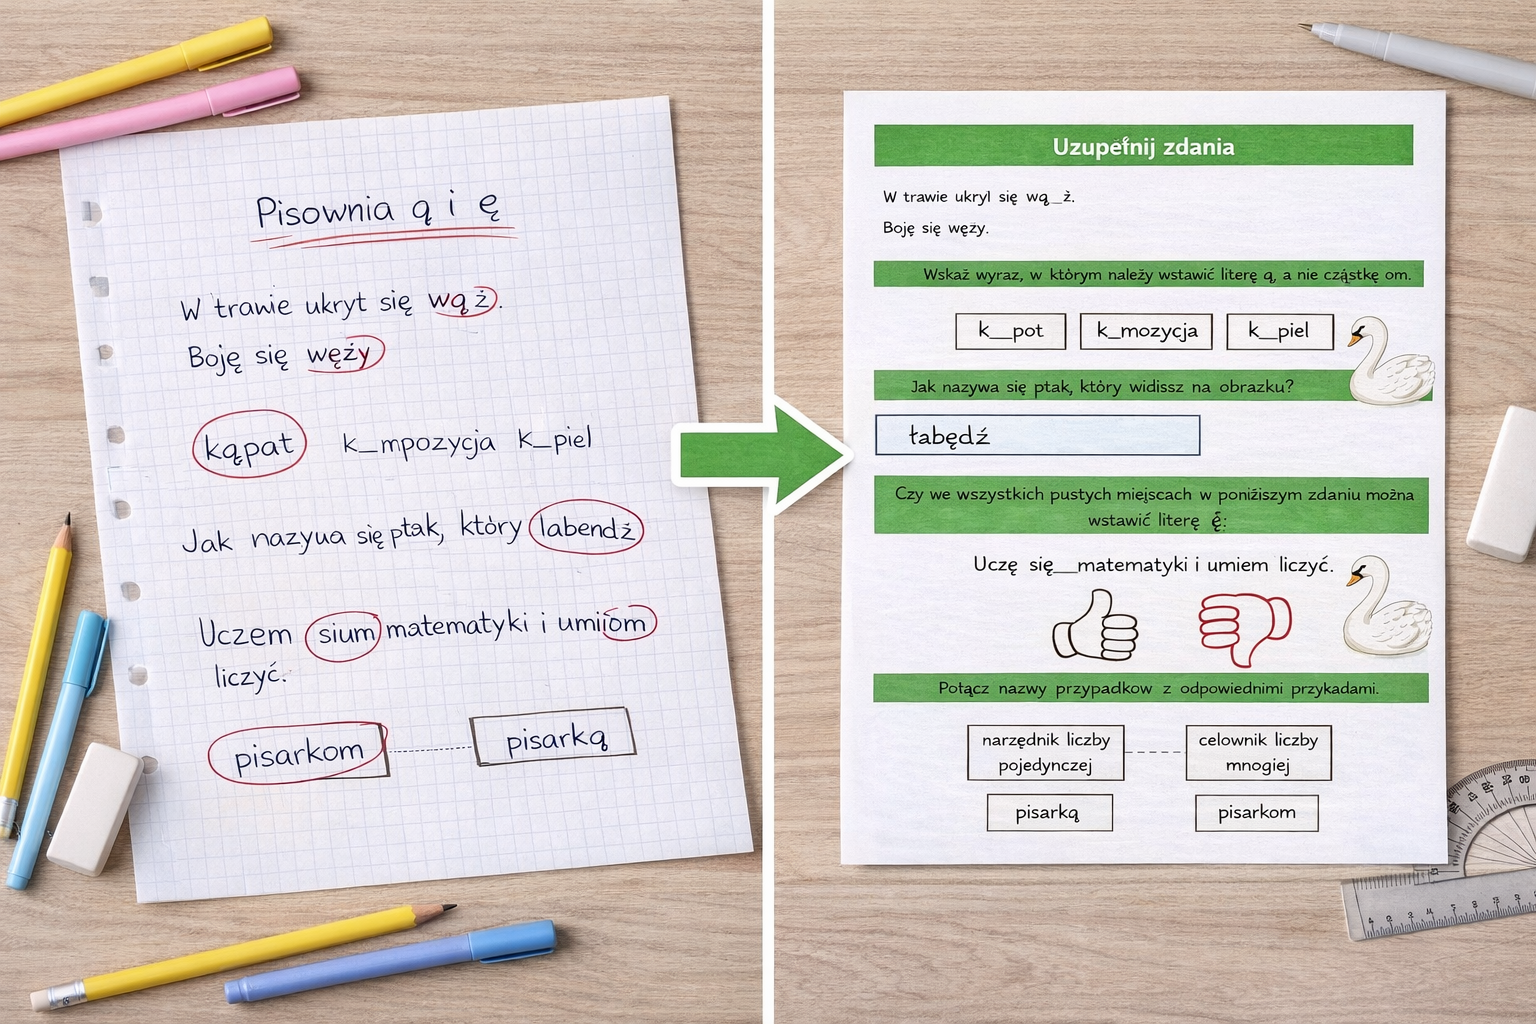 Pisownia ą i ę
W trawie ukryt się wąż.
Boję się węży
kąpat k_mpozycja k_piel
Jak nazyua się ptak, który labendż
Uczem sium matematyki i umiiom
liczyć.
pisarkom pisarką
Uzupełnij zdania
W trawie ukryl się wą_ż.
Boję się węży.
Wskaż wyraz, w którym należy wstawić literę ą, a nie cząstkę om.
k__pot k_mozycja k__piel
Jak nazywa się ptak, który widissz na obrazku?
łabędź
Czy we wszystkich pustych miejscach w poniższym zdaniu można
wstawić literę ę:
Uczę się__matematyki i umiem liczyć.
Potącz nazwy przypadkow z odpowiednimi przykadami.
narzędnik liczby
pojedynczej
celownik liczby
mnogiej
pisarką pisarkom